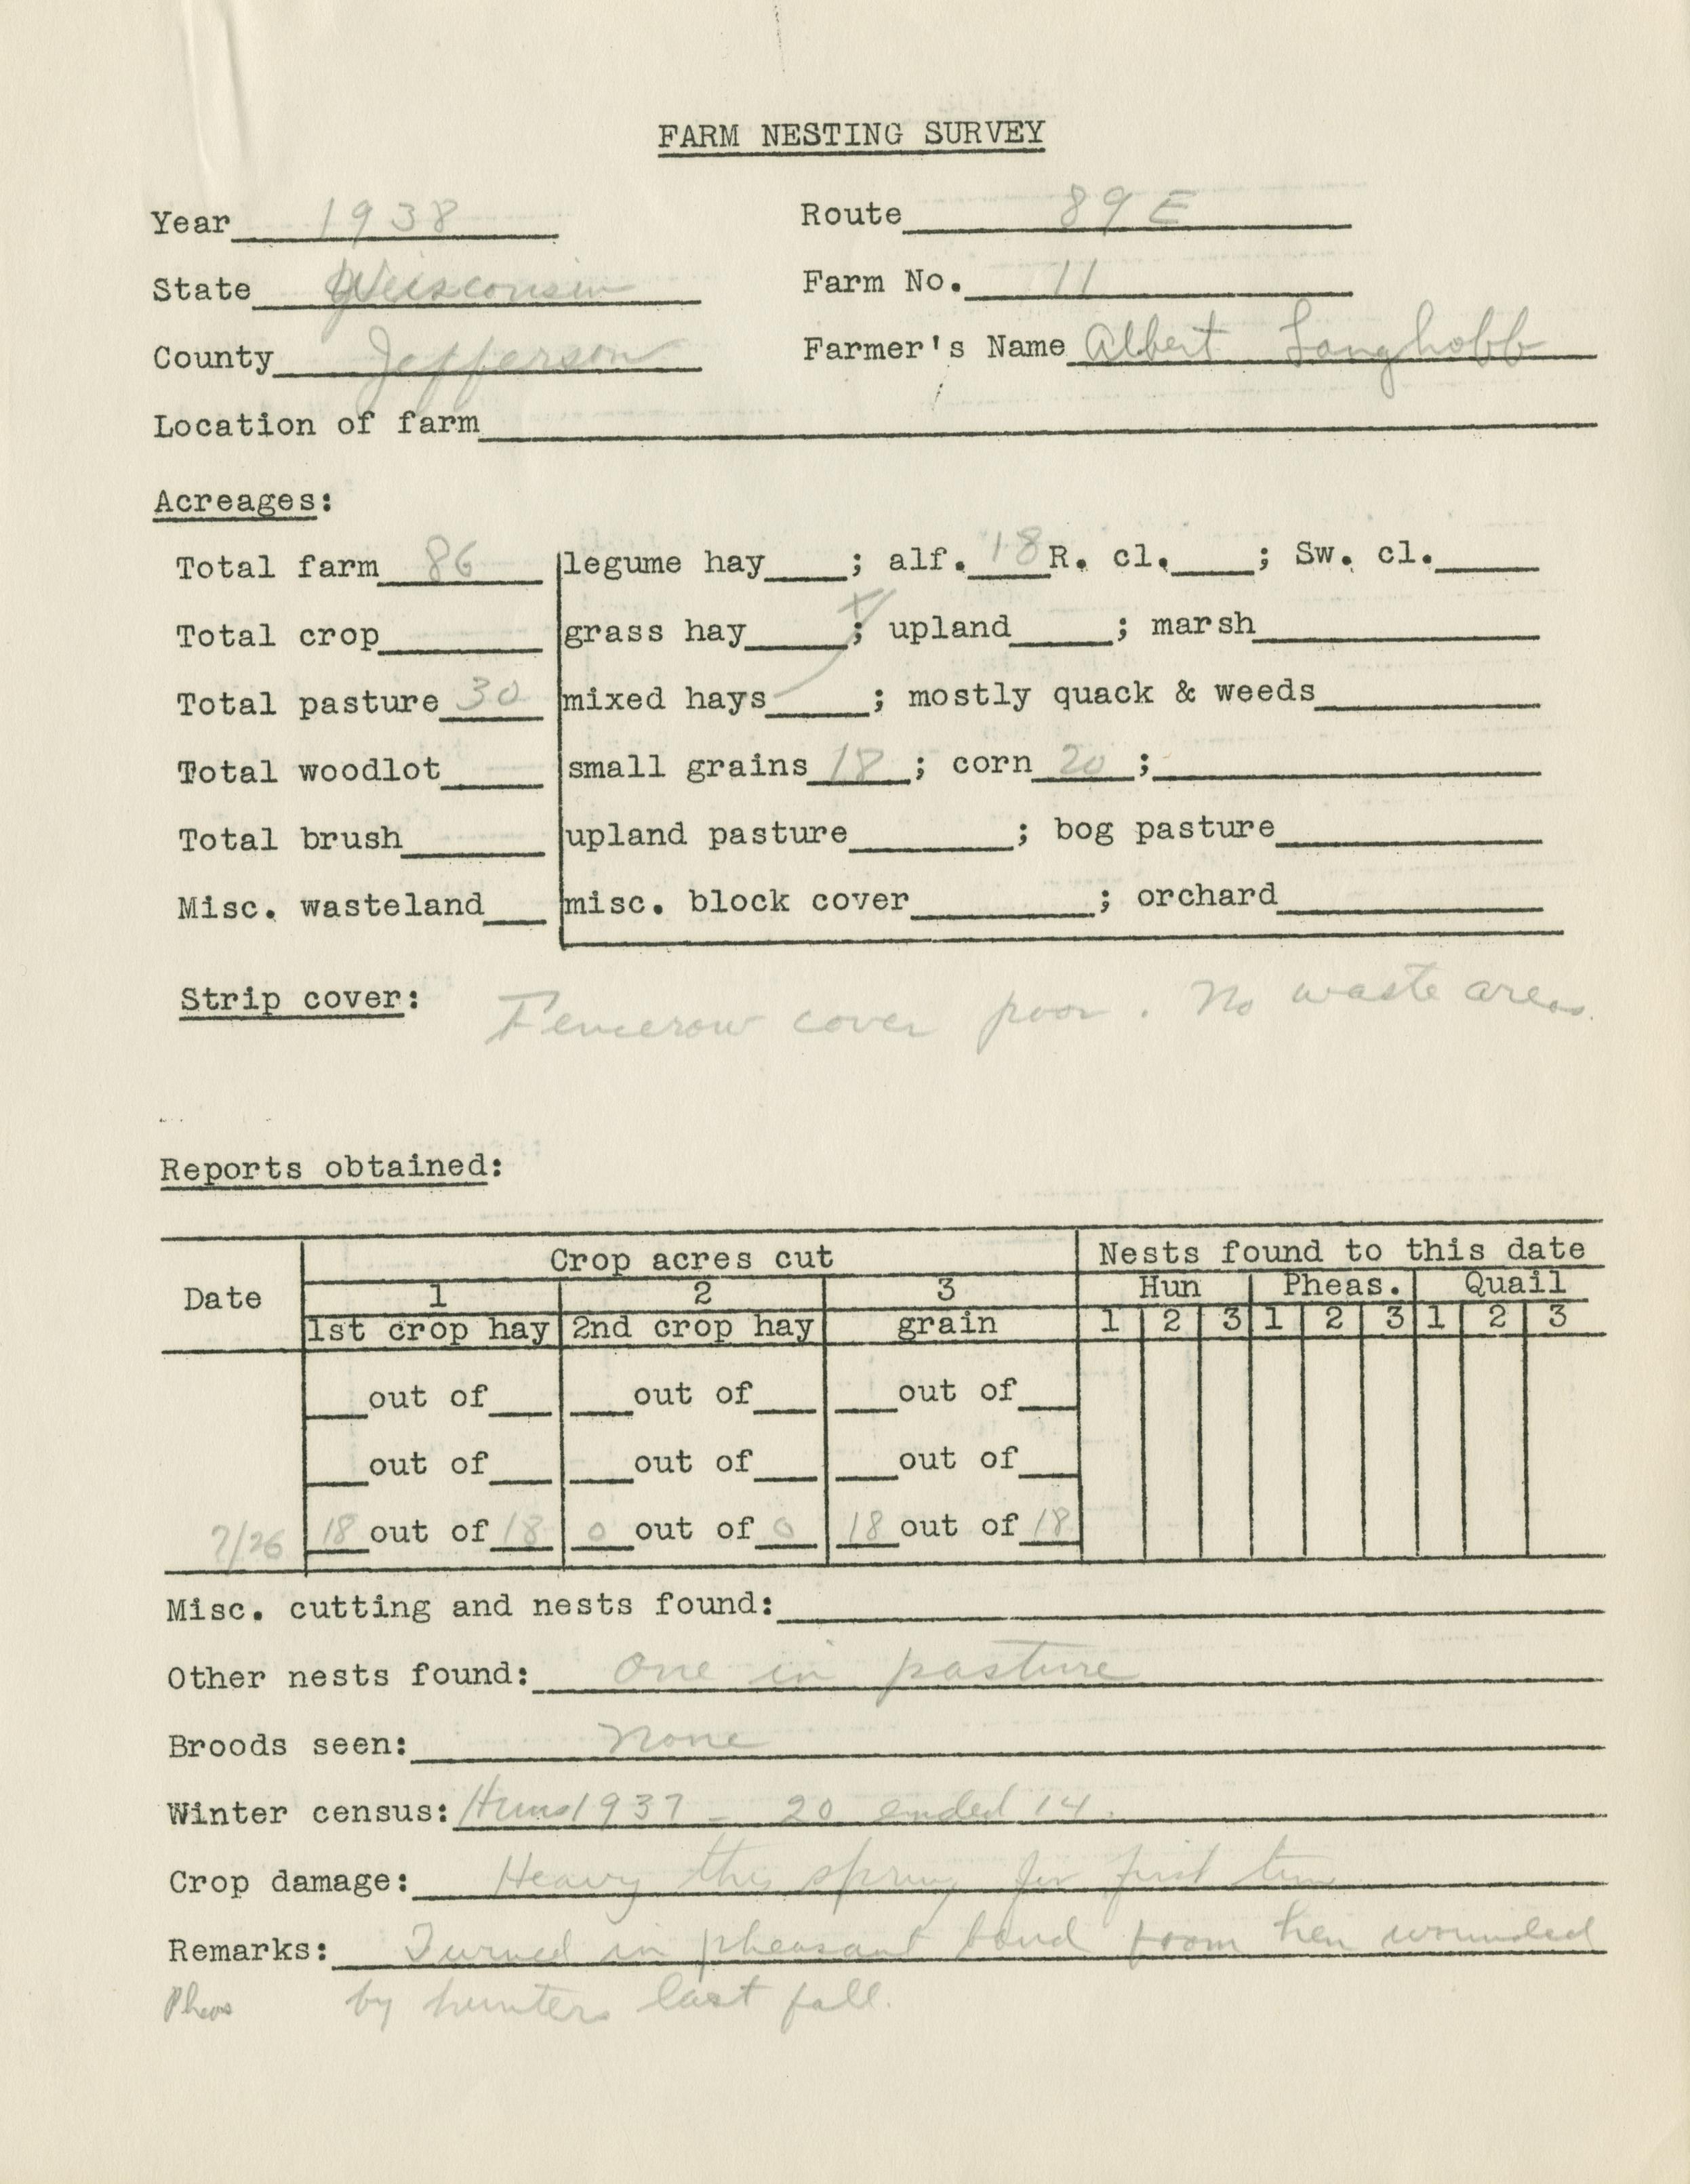 FARM NESTING SURVEY
Year 1938 Route 89 E
State Wisconsin Farm No. 11
County Jefferson Farmer's Name Albert Langhoff
Location of farm
Acreages:
Total farm 86 legume hay ; alf. 18 R. cl. ; Sw. cl.
Total crop grass hay ; upland ; marsh
Total pasture 30 mixed hays ; mostly quack & weeds
Total woodlot small grains 18 ; corn 20 ;
Total brush upland pasture ; bog pasture
Misc. wasteland misc. block cover ; orchard
Strip cover: Fencerow cover poor. No waste areas.
Reports obtained:
Crop acres cut Nests found to this date
Date 1 2 3 Hun Pheas. Quail
1st crop hay 2nd crop hay grain 1 2 3 1 2 3 1 2 3
out of out of out of
out of out of out of
7/26 18 out of 18 0 out of 0 18 out of 18
Misc. cutting and nests found:
Other nests found: One in pasture
Broods seen: None
Winter census: Huns 1937 - 20 ended 14.
Crop damage: Heavy this spring for first time
Remarks: Turned in pheasant band from hen wounded
Pheas by hunters last fall.